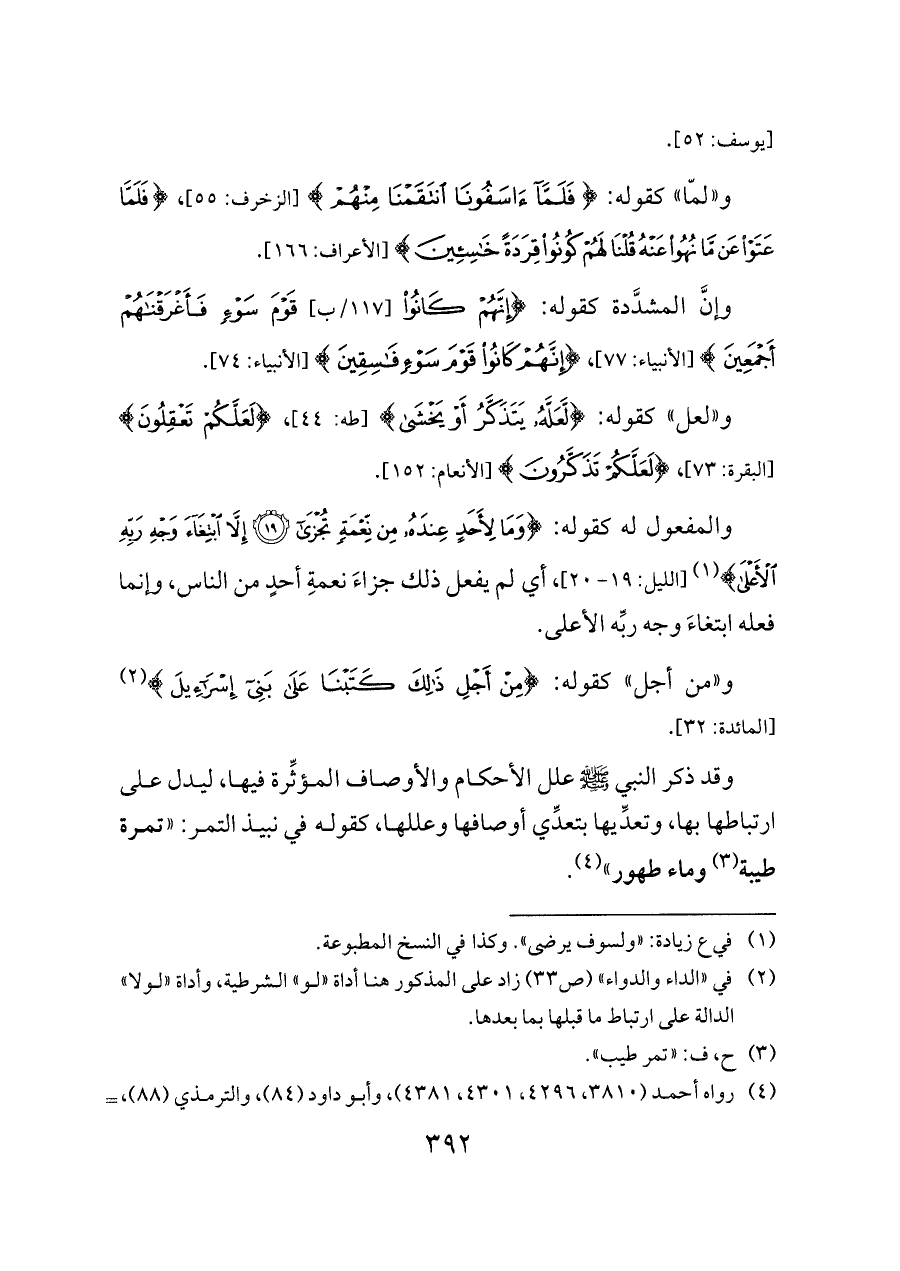 [يوسف: ٥٢].
و«لمّا» كقوله: ﴿فَلَمَّآ ءَاسَفُونَا ٱنتَقَمْنَا مِنْهُمْ﴾ [الزخرف: ٥٥]، ﴿فَلَمَّا
عَتَوْا۟ عَن مَّا نُهُوا۟ عَنْهُ قُلْنَا لَهُمْ كُونُوا۟ قِرَدَةً خَٰسِـِٔينَ﴾ [الأعراف: ١٦٦].
وإنَّ المشدَّدة كقوله: ﴿إِنَّهُمْ كَانُوا۟ [١١٧/ب] قَوْمَ سَوْءٍ فَأَغْرَقْنَٰهُمْ
أَجْمَعِينَ﴾ [الأنبياء: ٧٧]، ﴿إِنَّهُمْ كَانُوا۟ قَوْمَ سَوْءٍ فَٰسِقِينَ﴾ [الأنبياء: ٧٤].
و«لعل» كقوله: ﴿لَّعَلَّهُۥ يَتَذَكَّرُ أَوْ يَخْشَىٰ﴾ [طه: ٤٤]، ﴿لَعَلَّكُمْ تَعْقِلُونَ﴾
[البقرة: ٧٣]، ﴿لَعَلَّكُمْ تَذَكَّرُونَ﴾ [الأنعام: ١٥٢].
والمفعول له كقوله: ﴿وَمَا لِأَحَدٍ عِندَهُۥ مِن نِّعْمَةٍ تُجْزَىٰٓ ١٩ إِلَّا ٱبْتِغَآءَ وَجْهِ رَبِّهِ
ٱلْأَعْلَىٰ﴾(١) [الليل: ١٩-٢٠]، أي لم يفعل ذلك جزاءَ نعمةِ أحدٍ من الناس، وإنما
فعله ابتغاءَ وجه ربِّه الأعلى.
و«من أجل» كقوله: ﴿مِنْ أَجْلِ ذَٰلِكَ كَتَبْنَا عَلَىٰ بَنِىٓ إِسْرَٰٓءِيلَ﴾(٢)
[المائدة: ٣٢].
وقد ذكر النبي ﷺ علل الأحكام والأوصاف المؤثِّرة فيها، ليدل على
ارتباطها بها، وتعدِّيها بتعدِّي أوصافها وعللها، كقوله في نبيذ التمر: «تمرة
طيبة(٣) وماء طهور»(٤).
(١) في ع زيادة: «ولسوف يرضى». وكذا في النسخ المطبوعة.
(٢) في «الداء والدواء» (ص٣٣) زاد على المذكور هنا أداة «لو» الشرطية، وأداة «لولا»
الدالة على ارتباط ما قبلها بما بعدها.
(٣) ح، ف: «تمر طيب».
(٤) رواه أحمد (٣٨١٠، ٤٢٩٦، ٤٣٠١، ٤٣٨١)، وأبو داود (٨٤)، والترمذي (٨٨)، =
٣٩٢